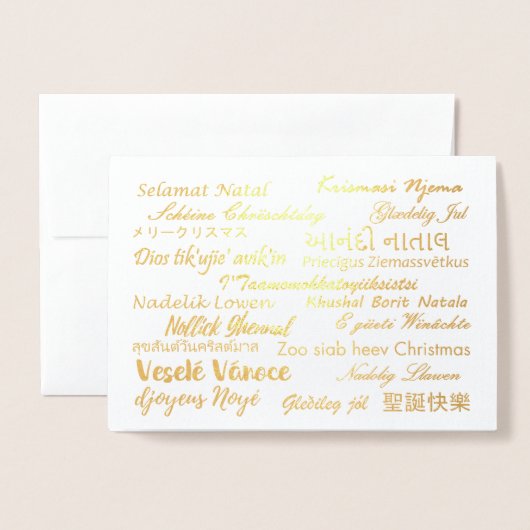 Selamat Natal
Krismasi Njema
Schéine Chrëschtdag
Glædelig Jul
メリークリスマス
આનંદી નાતાલ
Dios tik'ujie' avik'in
Priecīgus Ziemassvētkus
I'Taamomohkatoyiiksistsi
Nadelik Lowen
Khushal Borit Natala
Nollick Ghennal
E güeti Winächte
สุขสันต์วันคริสต์มาส
Zoo siab heev Christmas
Veselé Vánoce
Nadolig Llawen
djoyeus Noyé
Gleðileg jól
聖誕快樂